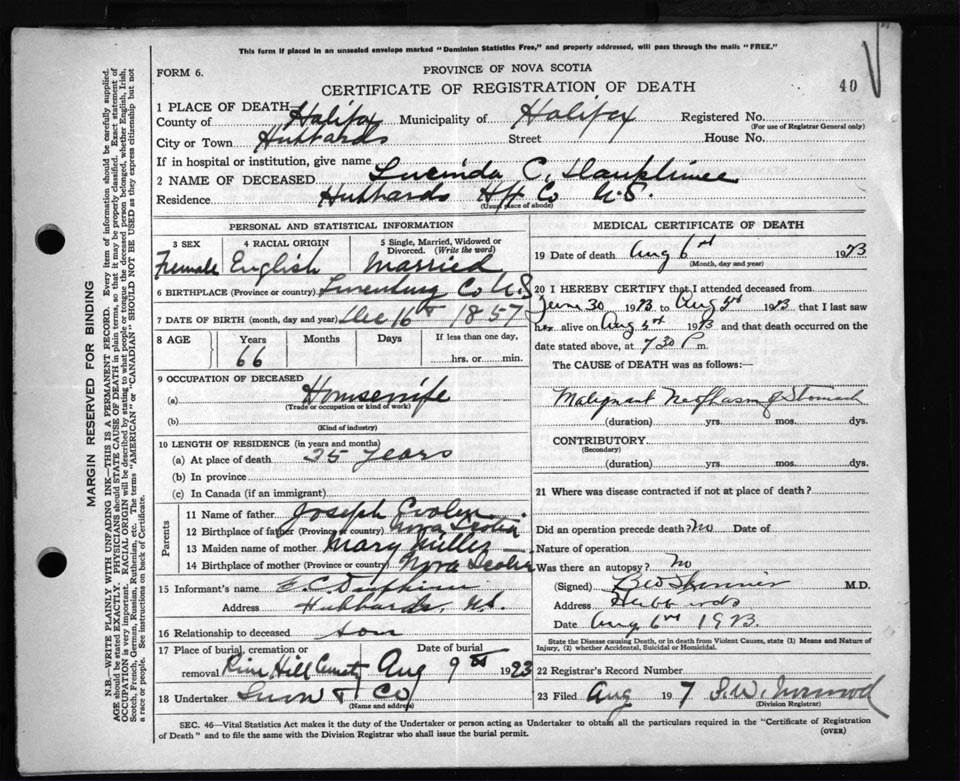 This form if placed in an unsealed envelope marked "Dominion Statistics Free," and properly addressed, will pass through the mails "FREE."
FORM 6.
PROVINCE OF NOVA SCOTIA
CERTIFICATE OF REGISTRATION OF DEATH
40
1 PLACE OF DEATH—
County of Halifax Municipality of Halifax Registered No.
(For use of Registrar General only)
City or Town Hubbards Street House No.
If in hospital or institution, give name
2 NAME OF DECEASED Lucinda C.
Residence Hubbards Hfx Co N.S.
(Usual place of abode)
PERSONAL AND STATISTICAL INFORMATION
3 SEX 4 RACIAL ORIGIN 5 Single, Married, Widowed or Divorced. (Write the word)
Female English Married
6 BIRTHPLACE (Province or country) Lunenburg Co N.S
7 DATE OF BIRTH (month, day and year) Dec 16th 1857
8 AGE Years Months Days If less than one day,
66 hrs. or min.
9 OCCUPATION OF DECEASED
(a) Housewife
(Trade or occupation or kind of work)
(b)
(Kind of industry)
10 LENGTH OF RESIDENCE (in years and months)
(a) At place of death 25 years
(b) In province
(c) In Canada (if an immigrant)
Parents
11 Name of father Joseph
12 Birthplace of father (Province or country) Nova Scotia
13 Maiden name of mother Mary
14 Birthplace of mother (Province or country) Nova Scotia
15 Informant's name E.C.
Address Hubbards, N.S.
16 Relationship to deceased son
17 Place of burial, cremation or removal Date of burial
Hill Aug 9th 1923
18 Undertaker Snow & Co
(Name and address)
MEDICAL CERTIFICATE OF DEATH
19 Date of death Aug 6th 1923
(Month, day and year)
20 I HEREBY CERTIFY that I attended deceased from
June 30 1923 to Aug 5th 1923, that I last saw
her alive on Aug 5th 1923 and that death occurred on the
date stated above, at 7 30 P m.
The CAUSE of DEATH was as follows:
Malignant Neoplasm of Stomach
(duration) yrs. mos. dys.
CONTRIBUTORY
(Secondary)
(duration) yrs. mos. dys.
21 Where was disease contracted if not at place of death?
Did an operation precede death? No Date of
Nature of operation
Was there an autopsy? No
(Signed) Skinner M.D.
Address Hubbards
Date Aug 6th 1923.
State the Disease causing Death, or in death from Violent Causes, state (1) Means and Nature of Injury, (2) whether Accidental, Suicidal or Homicidal.
22 Registrar's Record Number
23 Filed Aug 19 7 S.W.
(Division Registrar)
SEC. 46—Vital Statistics Act makes it the duty of the Undertaker or person acting as Undertaker to obtain all the particulars required in the "Certificate of Registration
of Death" and to file the same with the Division Registrar who shall issue the burial permit.
(OVER)
MARGIN RESERVED FOR BINDING
N.B.—WRITE PLAINLY WITH UNFADING INK—THIS IS A PERMANENT RECORD. Every item of information should be carefully supplied.
AGE should be stated EXACTLY. PHYSICIANS should STATE CAUSE OF DEATH in plain terms, so that it may be properly classified. Exact statement of
OCCUPATION is very important. RACIAL ORIGIN will be described by stating to what people or tongue the deceased person belonged, whether English, Irish,
Scotch, French, German, Russian, Ruthenian, etc. The terms "AMERICAN" or "CANADIAN" SHOULD NOT BE USED as they express citizenship but not
a race or people. See instructions on back of Certificate.